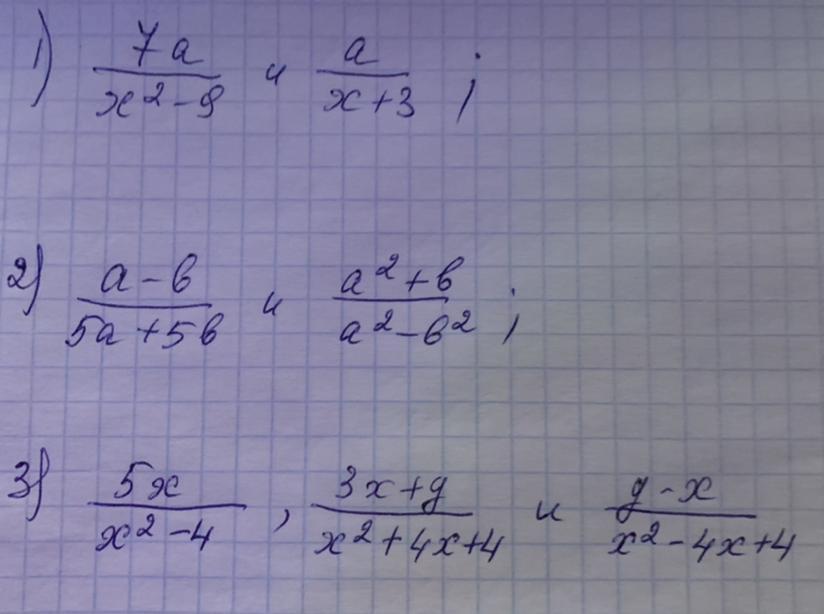 1) 7a/(x²-9) и a/(x+3) ;
2) (a-b)/(5a+5b) и (a²+b)/(a²-b²) ;
3) 5x/(x²-4) , (3x+y)/(x²+4x+4) и (y-x)/(x²-4x+4)